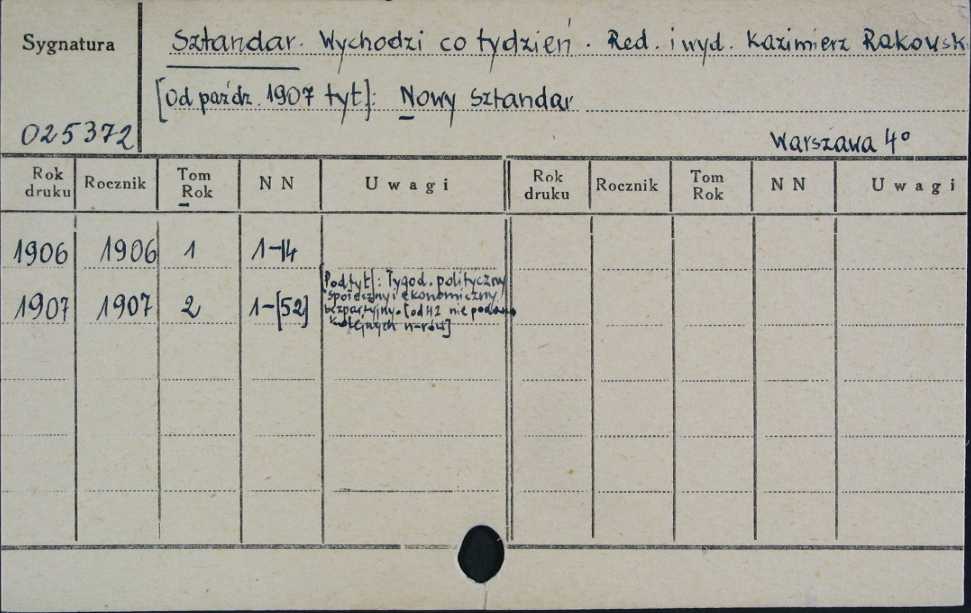 Sygnatura
Sztandar. Wychodzi co tydzień. Red. i wyd. Kazimierz Rakowsk
[Od paźdz. 1907 tyt]: Nowy Sztandar
025372
Warszawa 4°
Rok druku Rocznik Tom Rok N N Uwagi Rok druku Rocznik Tom Rok N N Uwagi
1906 1906 1 1-14
1907 1907 2 1-[52]
Podtyt]: Tygod. polityczny
społeczny i ekonomiczny
bezpartyjny. [od 42 nie podano
kolejnych n-rów]